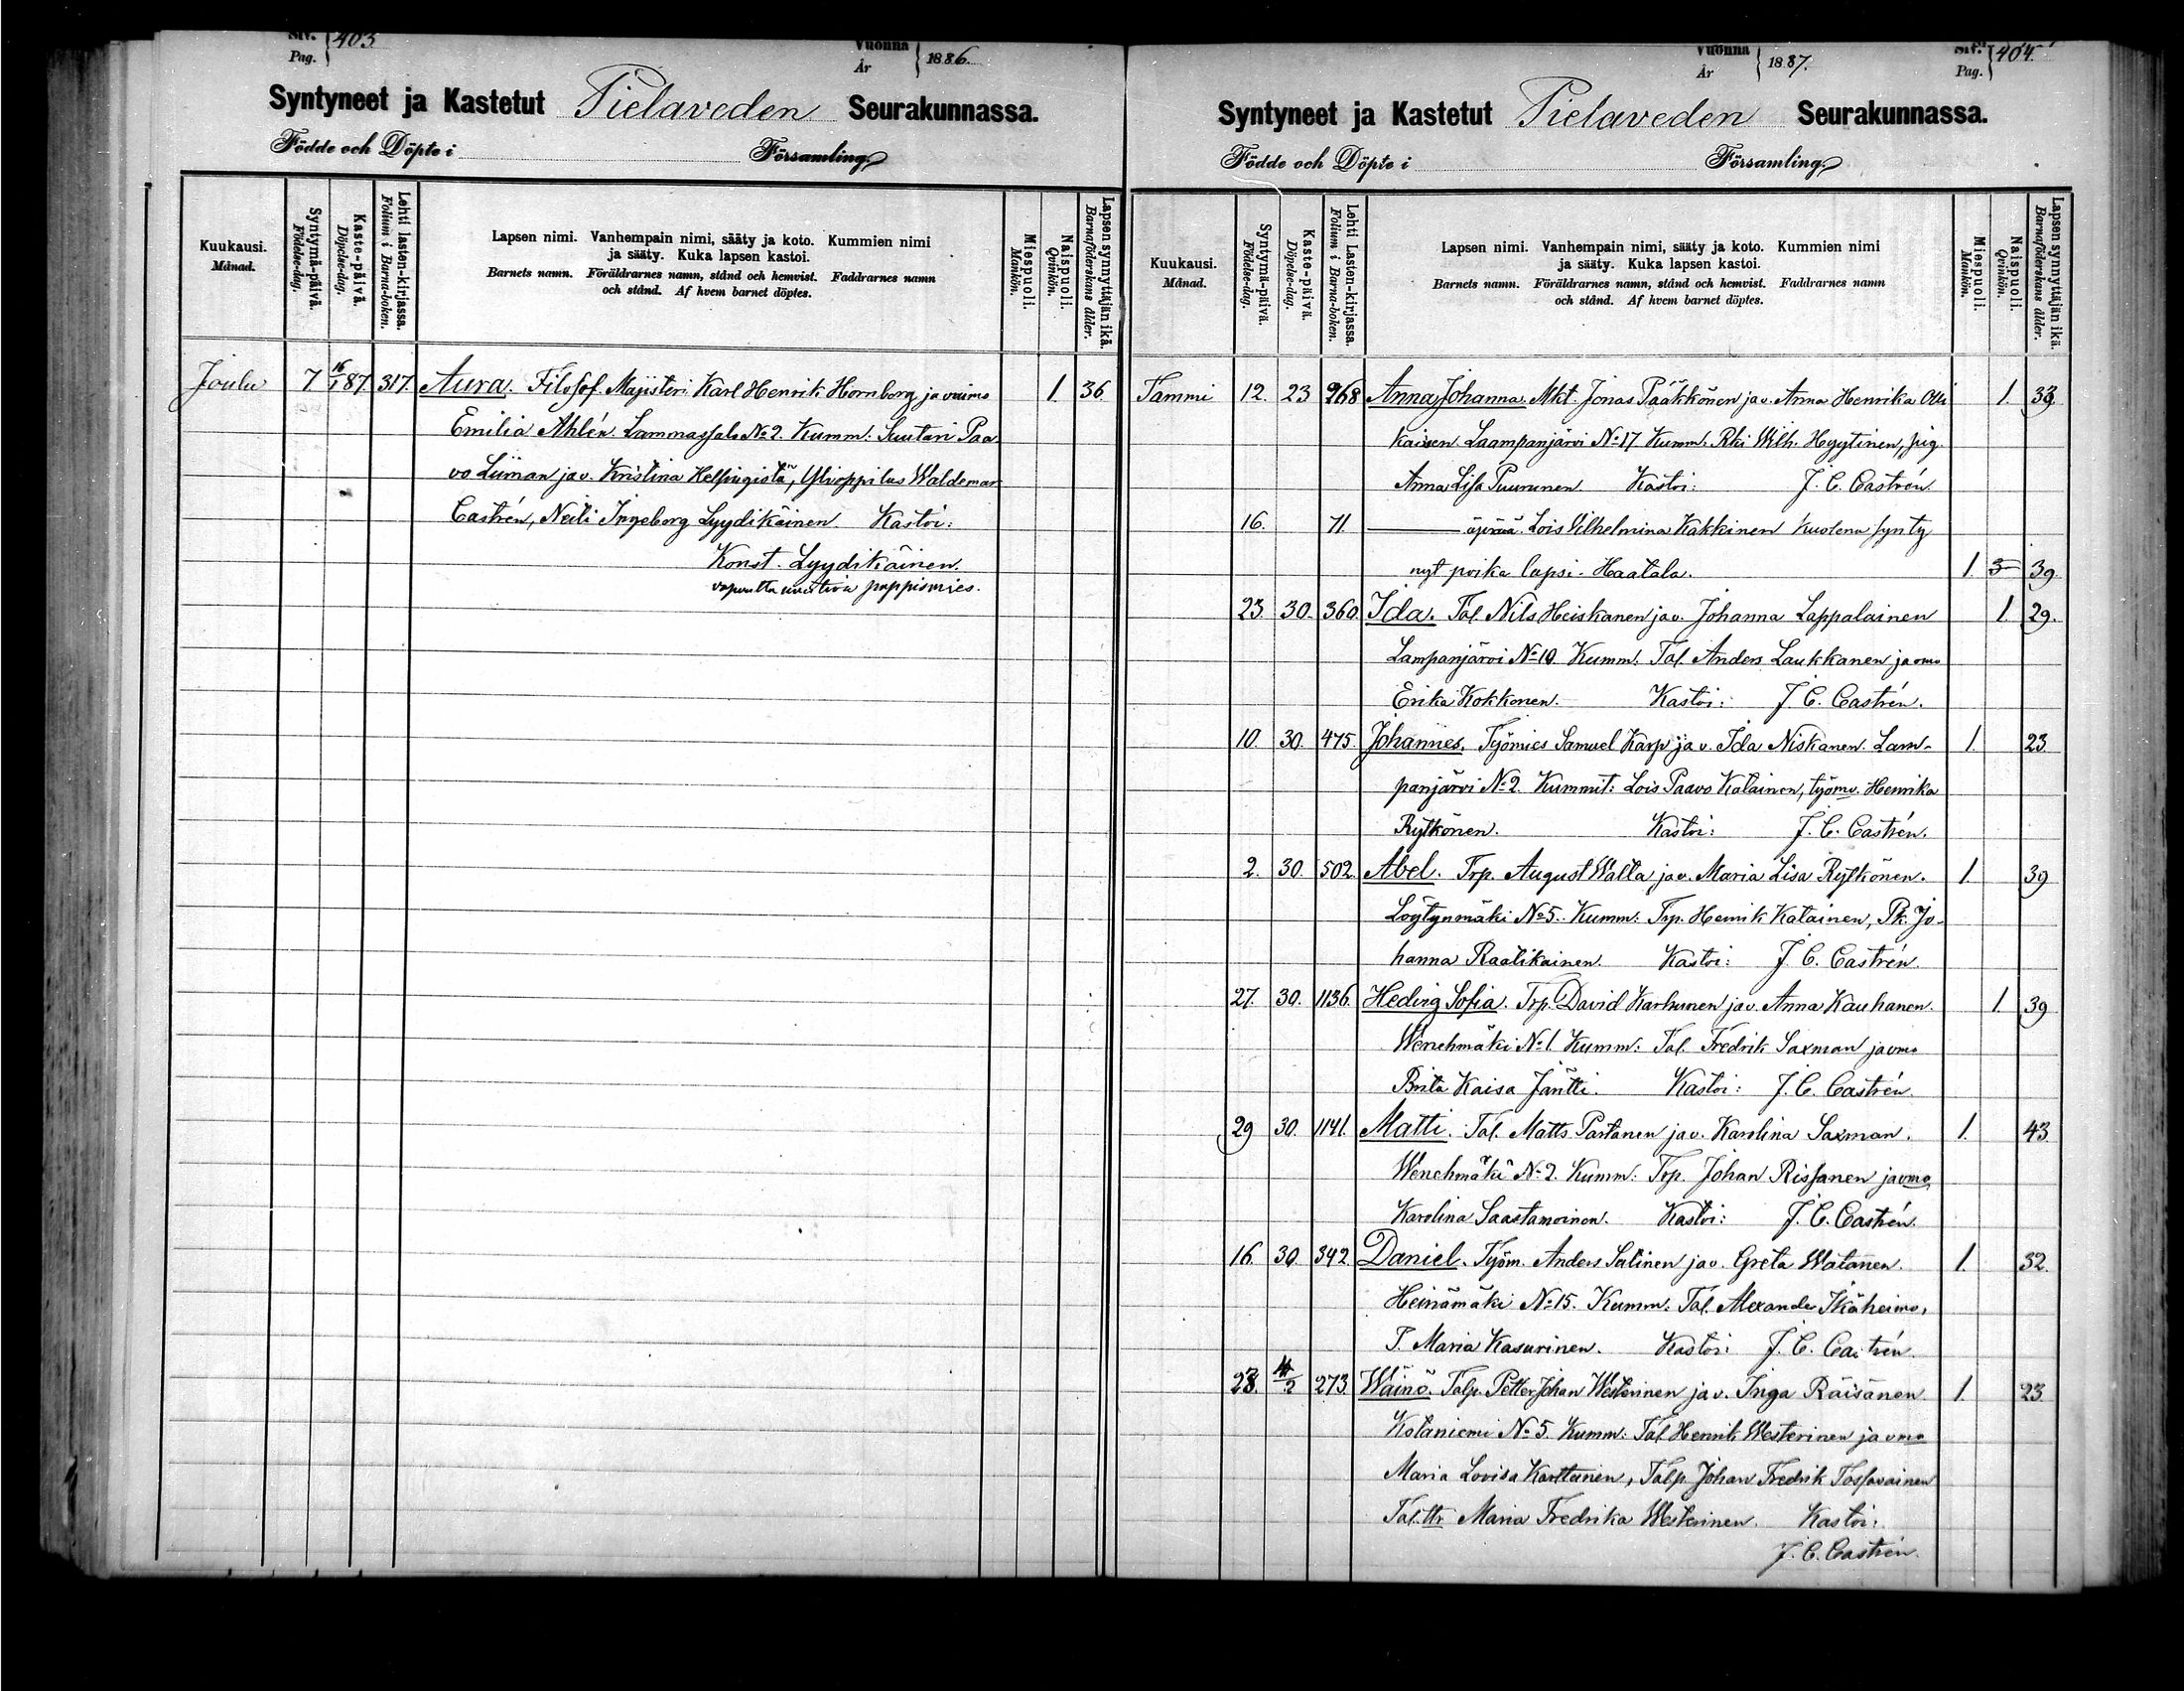 Siv. 403
Pag.
Vuonna 1886.
År
Syntyneet ja Kastetut Pielaveden Seurakunnassa.
Födde och Döpte i Församling.
Kuukausi.
Månad.
Syntymä-päivä.
Födelse-dag.
Kaste-päivä.
Döpelse-dag.
Lehti lasten-kirjassa.
Folium i Barna-boken.
Lapsen nimi. Vanhempain nimi, sääty ja koto. Kummien nimi
ja sääty. Kuka lapsen kastoi.
Barnets namn. Föräldrarnes namn, stånd och hemvist. Faddrarnes namn
och stånd. Af hvem barnet döptes.
Miespuoli.
Mankön.
Naispuoli.
Qvinkön.
Lapsen synnyttäjän ikä.
Barnaföderskans ålder.
Joulu 7 16/1 87. 317. Aura. Filosof. Majisteri Karl Henrik Hornborg ja vaimo 1. 36.
Emilia Ahlén. Lammassalo No 2. Kumm: Suutari Paa
vo Liiman ja v. Kristina Helsingistä, Ylioppilas Waldemar
Castrén, Neiti Ingeborg Lyydikäinen Kastoi:
Konst. Lyydikäinen.
pappismies.
Siv. 404.
Pag.
Vuonna 1887.
År
Syntyneet ja Kastetut Pielaveden Seurakunnassa.
Födde och Döpte i Församling.
Kuukausi.
Månad.
Syntymä-päivä.
Födelse-dag.
Kaste-päivä.
Döpelse-dag.
Lehti Lasten-kirjassa.
Folium i Barna-boken.
Lapsen nimi. Vanhempain nimi, sääty ja koto. Kummien nimi
ja sääty. Kuka lapsen kastoi.
Barnets namn. Föräldrarnes namn, stånd och hemvist. Faddrarnes namn
och stånd. Af hvem barnet döptes.
Miespuoli.
Mankön.
Naispuoli.
Qvinkön.
Lapsen synnyttäjän ikä.
Barnaföderskans ålder.
Tammi 12. 23 268 Anna Johanna. Mkt. Jonas Pääkkönen ja v. Anna Henrika Olli 1. 33
kainen. Laampanjärvi No 17 Kumm. Rki Wilh. Hyytinen, pig.
Anna Lisa Puurunen Kastoi: J. C. Castrén.
16. 71. äpärä. Lois Wilhelmina Kakkinen kuolena synty
nyt poika lapsi. Haatala. 1. 39.
23. 30. 360. Ida. Tal. Nils Heiskanen ja v. Johanna Lappalainen 1. 29.
Lampanjärvi No 10. Kumm. Tal. Anders Laukkanen ja vmo
Erika Kokkonen. Kastoi: J. C. Castrén.
10. 30. 475. Johannes. Työmies Samuel Karp ja v. Ida Niskanen. Lam- 1. 23
panjärvi No 2. Kummit: Lois Paavo Katainen, työmv. Henrika
Rytkönen. Kastoi: J. C. Castrén.
2. 30. 502. Abel. Trp. August Walta ja v. Maria Lisa Rytkönen. 1. 39
Löytynmäki No 5. Kumm: Trp. Henrik Katainen, Pk. Jo-
hanna Raatikainen. Kastoi: J. C. Castrén.
27. 30. 1136. Hedvig Sofia. Trp. David Karhunen ja v. Anna Kauhanen. 1. 39
Wenehmäki No 1. Kumm: Tal. Fredrik Saxman ja vmo
Brita Kaisa Jäntti. Kastoi: J. C. Castrén.
29 30. 1141. Matti. Tal. Matts Partanen ja v. Karolina Saxman. 1. 43
Wenehmäki No 2. Kumm: Trp. Johan Rissanen ja vmo
Karolina Saastamoinen. Kastoi: J. C. Castrén.
16. 30. 342. Daniel. Työm. Anders Salinen ja v. Greta Watanen. 1. 32.
Heinämäki No 15. Kumm: Tal. Alexander Ikäheimo,
P. Maria Kasurinen. Kastoi: J. C. Castrén.
28. 273. Wäinö. Talp. Petter Johan Westerinen ja v. Inga Räisänen 1. 23.
Kotaniemi No 5. Kumm: Tal. Henrik Westerinen ja vmo
Maria Lovisa Karttunen, Talp. Johan Fredrik Tossavainen
Tal. ttr Maria Fredrika Westerinen. Kastoi:
J. C. Castrén.